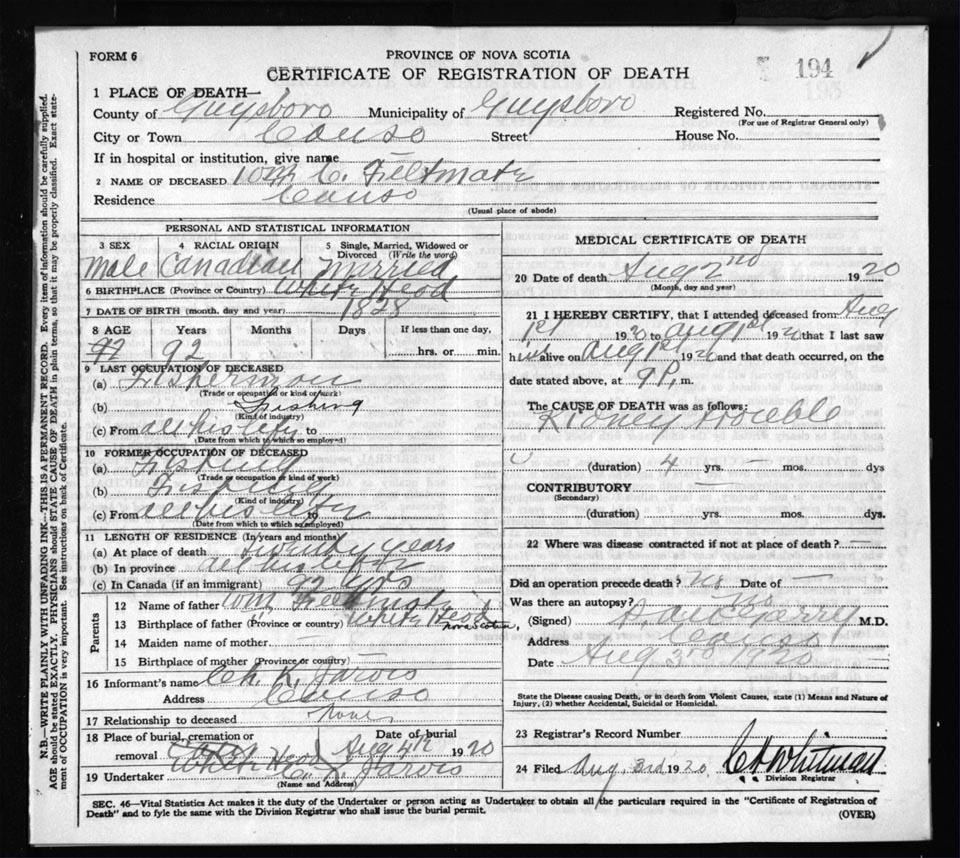 FORM 6
PROVINCE OF NOVA SCOTIA
CERTIFICATE OF REGISTRATION OF DEATH
194
195
1 PLACE OF DEATH—
County of Guysboro Municipality of Guysboro Registered No.
(For use of Registrar General only)
City or Town Canso Street House No.
If in hospital or institution, give name —
2 NAME OF DECEASED Wm C. Feltmate
Residence Canso
(Usual place of abode)
PERSONAL AND STATISTICAL INFORMATION
3 SEX 4 RACIAL ORIGIN 5 Single, Married, Widowed or Divorced (Write the word)
Male Canadian Married
6 BIRTHPLACE (Province or Country) White Head
7 DATE OF BIRTH (month, day and year) 1828
8 AGE Years Months Days If less than one day,
92 92 hrs. or min.
9 LAST OCCUPATION OF DECEASED
(a) Fisherman
(Trade or occupation or kind of work)
(b) Fishing
(Kind of industry)
(c) From all his life to
(Date from which to which so employed)
10 FORMER OCCUPATION OF DECEASED
(a) Fishing
(Trade or occupation or kind of work)
(b) Fishing
(Kind of industry)
(c) From all his life to
(Date from which to which so employed)
11 LENGTH OF RESIDENCE (In years and months)
(a) At place of death years
(b) In province all his life
(c) In Canada (if an immigrant) 92 yrs
Parents
12 Name of father Wm Feltmate
13 Birthplace of father (Province or country) White Head Nova Scotia,
14 Maiden name of mother —
15 Birthplace of mother (Province or country) —
16 Informant's name Ch. K. Jarvis
Address Canso
17 Relationship to deceased None
18 Place of burial, cremation or removal Date of burial
White Head Aug 4th 1920
19 Undertaker Jarvis
(Name and Address)
MEDICAL CERTIFICATE OF DEATH
20 Date of death Aug 2nd 1920
(Month, day and year)
21 I HEREBY CERTIFY, that I attended deceased from Aug
1st 1920 to Aug 1st 1920 that I last saw
him alive on Aug 1st 1920 and that death occurred, on the
date stated above, at 9 P. m.
The CAUSE OF DEATH was as follows:
Kidney trouble
(duration) 4 yrs. — mos. dys
CONTRIBUTORY —
(Secondary)
(duration) yrs. mos. dys.
22 Where was disease contracted if not at place of death? —
Did an operation precede death? No Date of —
Was there an autopsy? No
(Signed) M.D.
Address Canso
Date Aug 3rd 1920
State the Disease causing Death, or in death from Violent Causes, state (1) Means and Nature of
Injury, (2) whether Accidental, Suicidal or Homicidal.
23 Registrar's Record Number
24 Filed Aug. 3rd 1920 Whitman
Division Registrar
SEC. 46—Vital Statistics Act makes it the duty of the Undertaker or person acting as Undertaker to obtain all the particulars required in the "Certificate of Registration of
Death" and to fyle the same with the Division Registrar who shall issue the burial permit.
(OVER)
N.B.—WRITE PLAINLY WITH UNFADING INK—THIS IS A PERMANENT RECORD. Every item of information should be carefully supplied.
AGE should be stated EXACTLY. PHYSICIANS should STATE CAUSE OF DEATH in plain terms, so that it may be properly classified. Exact state-
ment of OCCUPATION is very important. See instructions on back of Certificate.